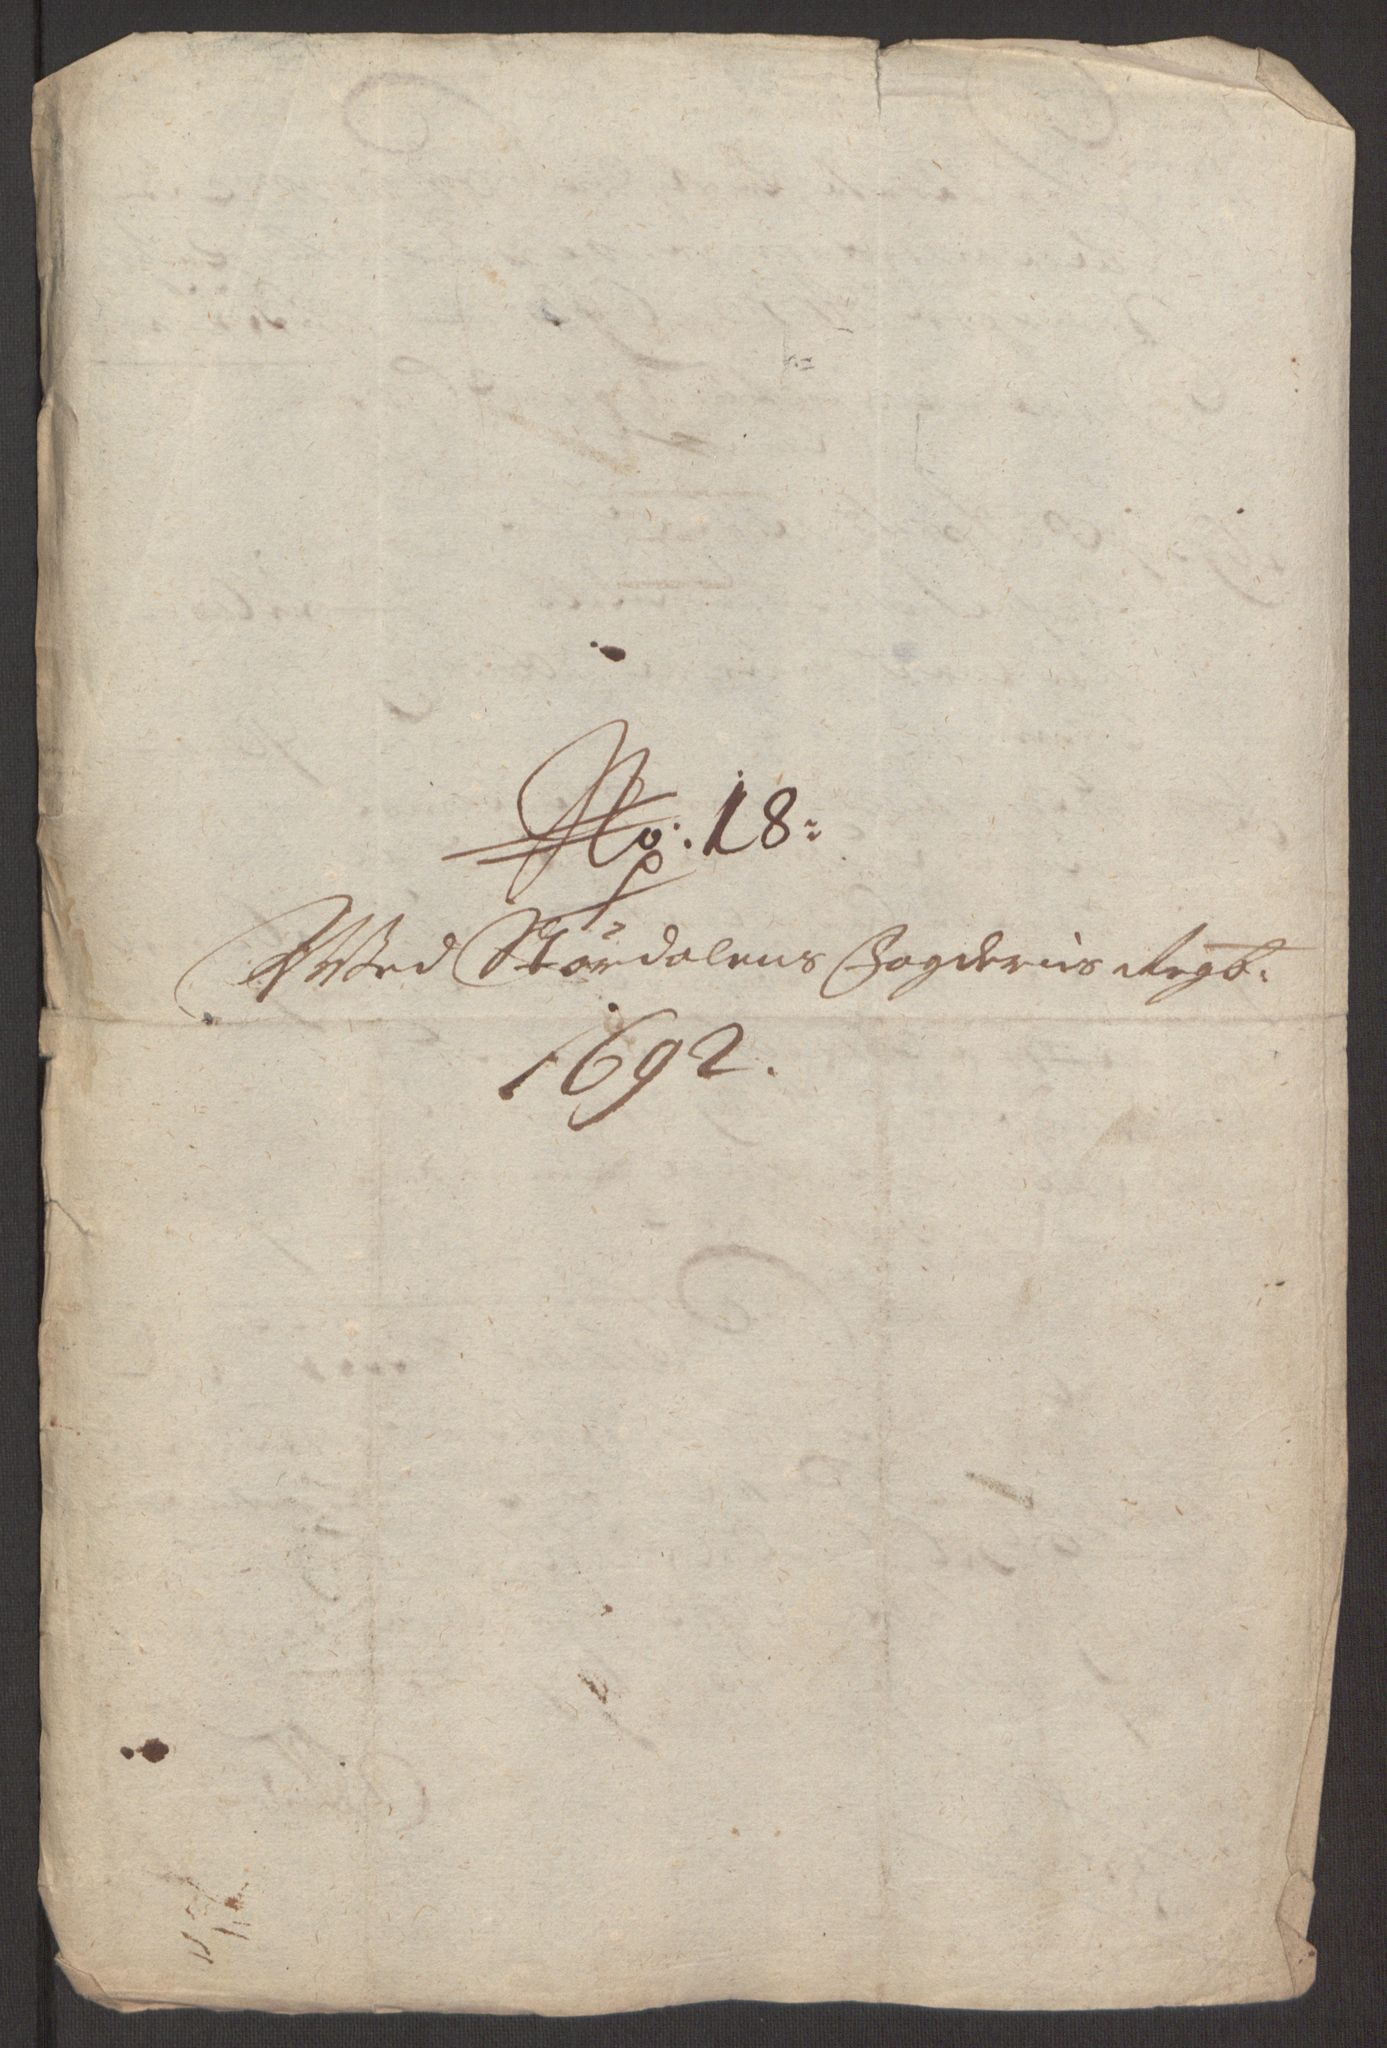 No. 18:
Wed Stördalens Fogderies Regb.
1692.